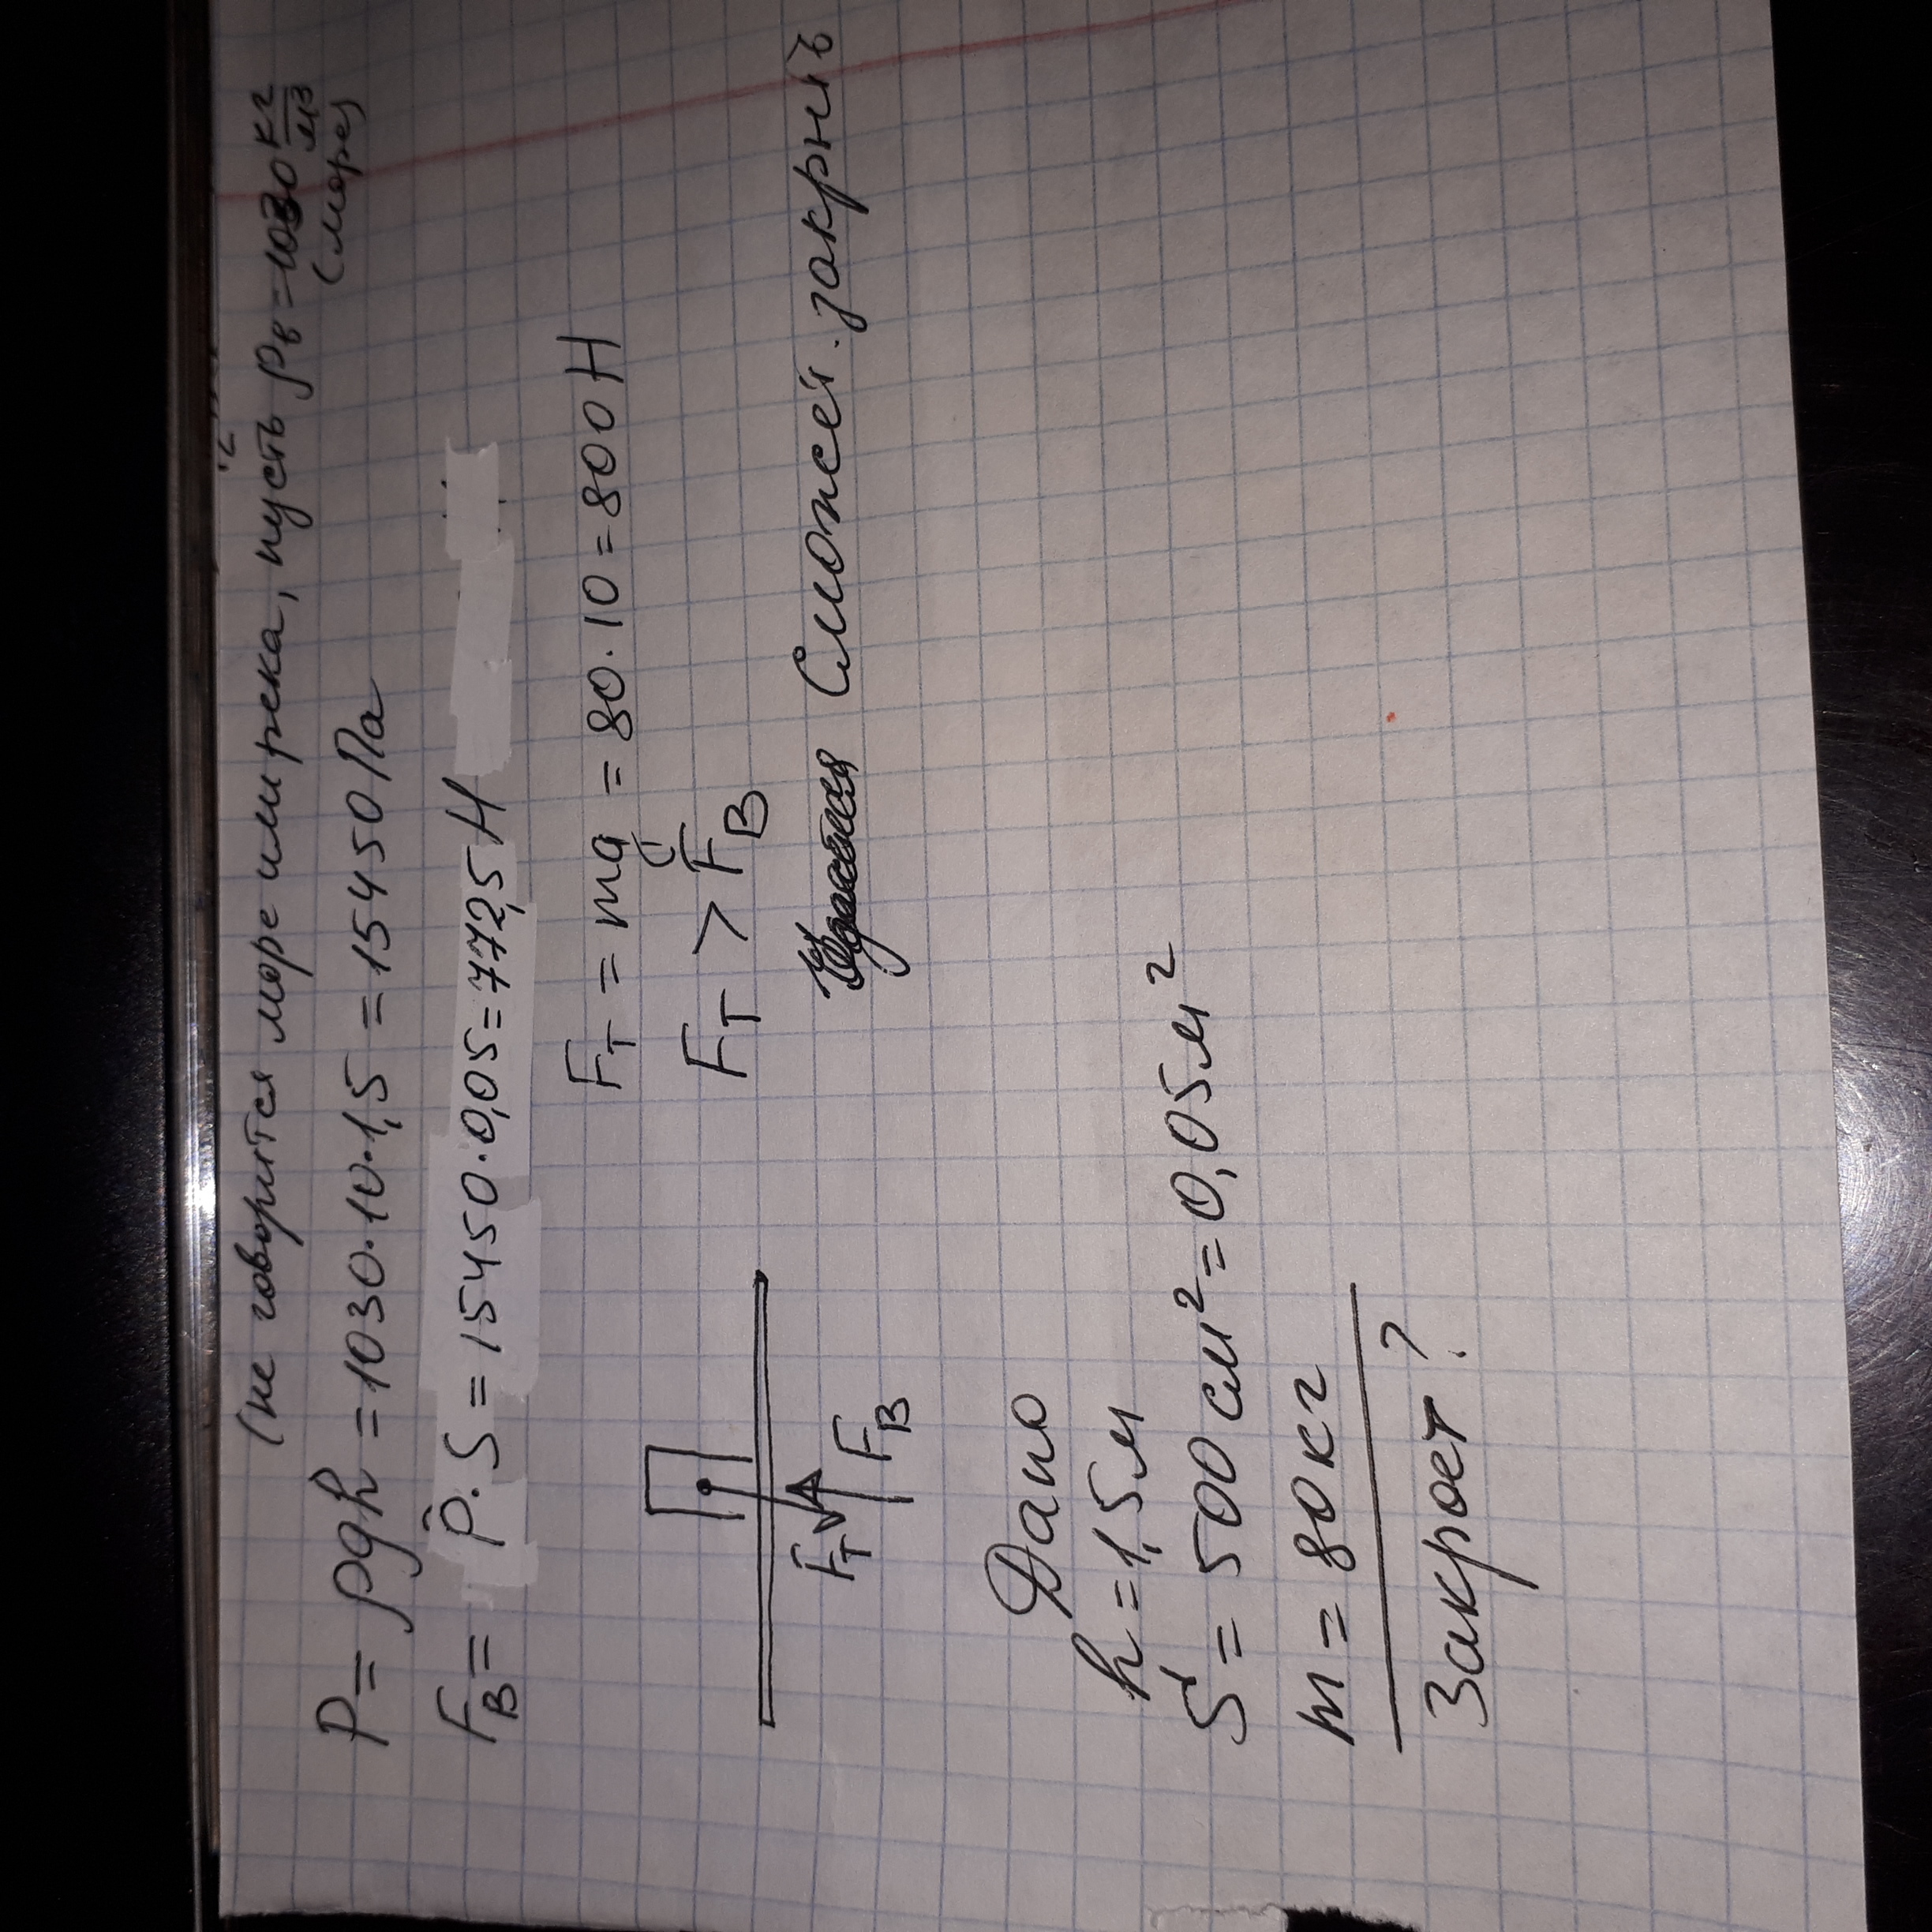 (не говорится море или река, пусть ρв = 1030 кг/м3
(море)
P = ρgh = 1030·10·1,5 = 15450 Па
FB = P·S = 15450·0,05 = 772,5 Н
FT = mg = 80·10 = 800 Н
FT > FB
Сможет закрыть
FT
FB
Дано
h = 1,5 м
S = 500 см² = 0,05 м²
m = 80 кг
Закроет ?